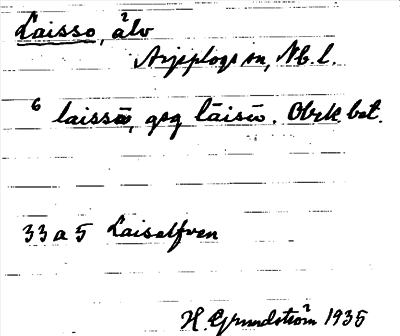 Laisso, älv
Arjeplogs sn, Nb. l.
6 laissō, gsg lāisō. Obek. bet.
33 a 5 Laisälfven
H. Grundström 1935